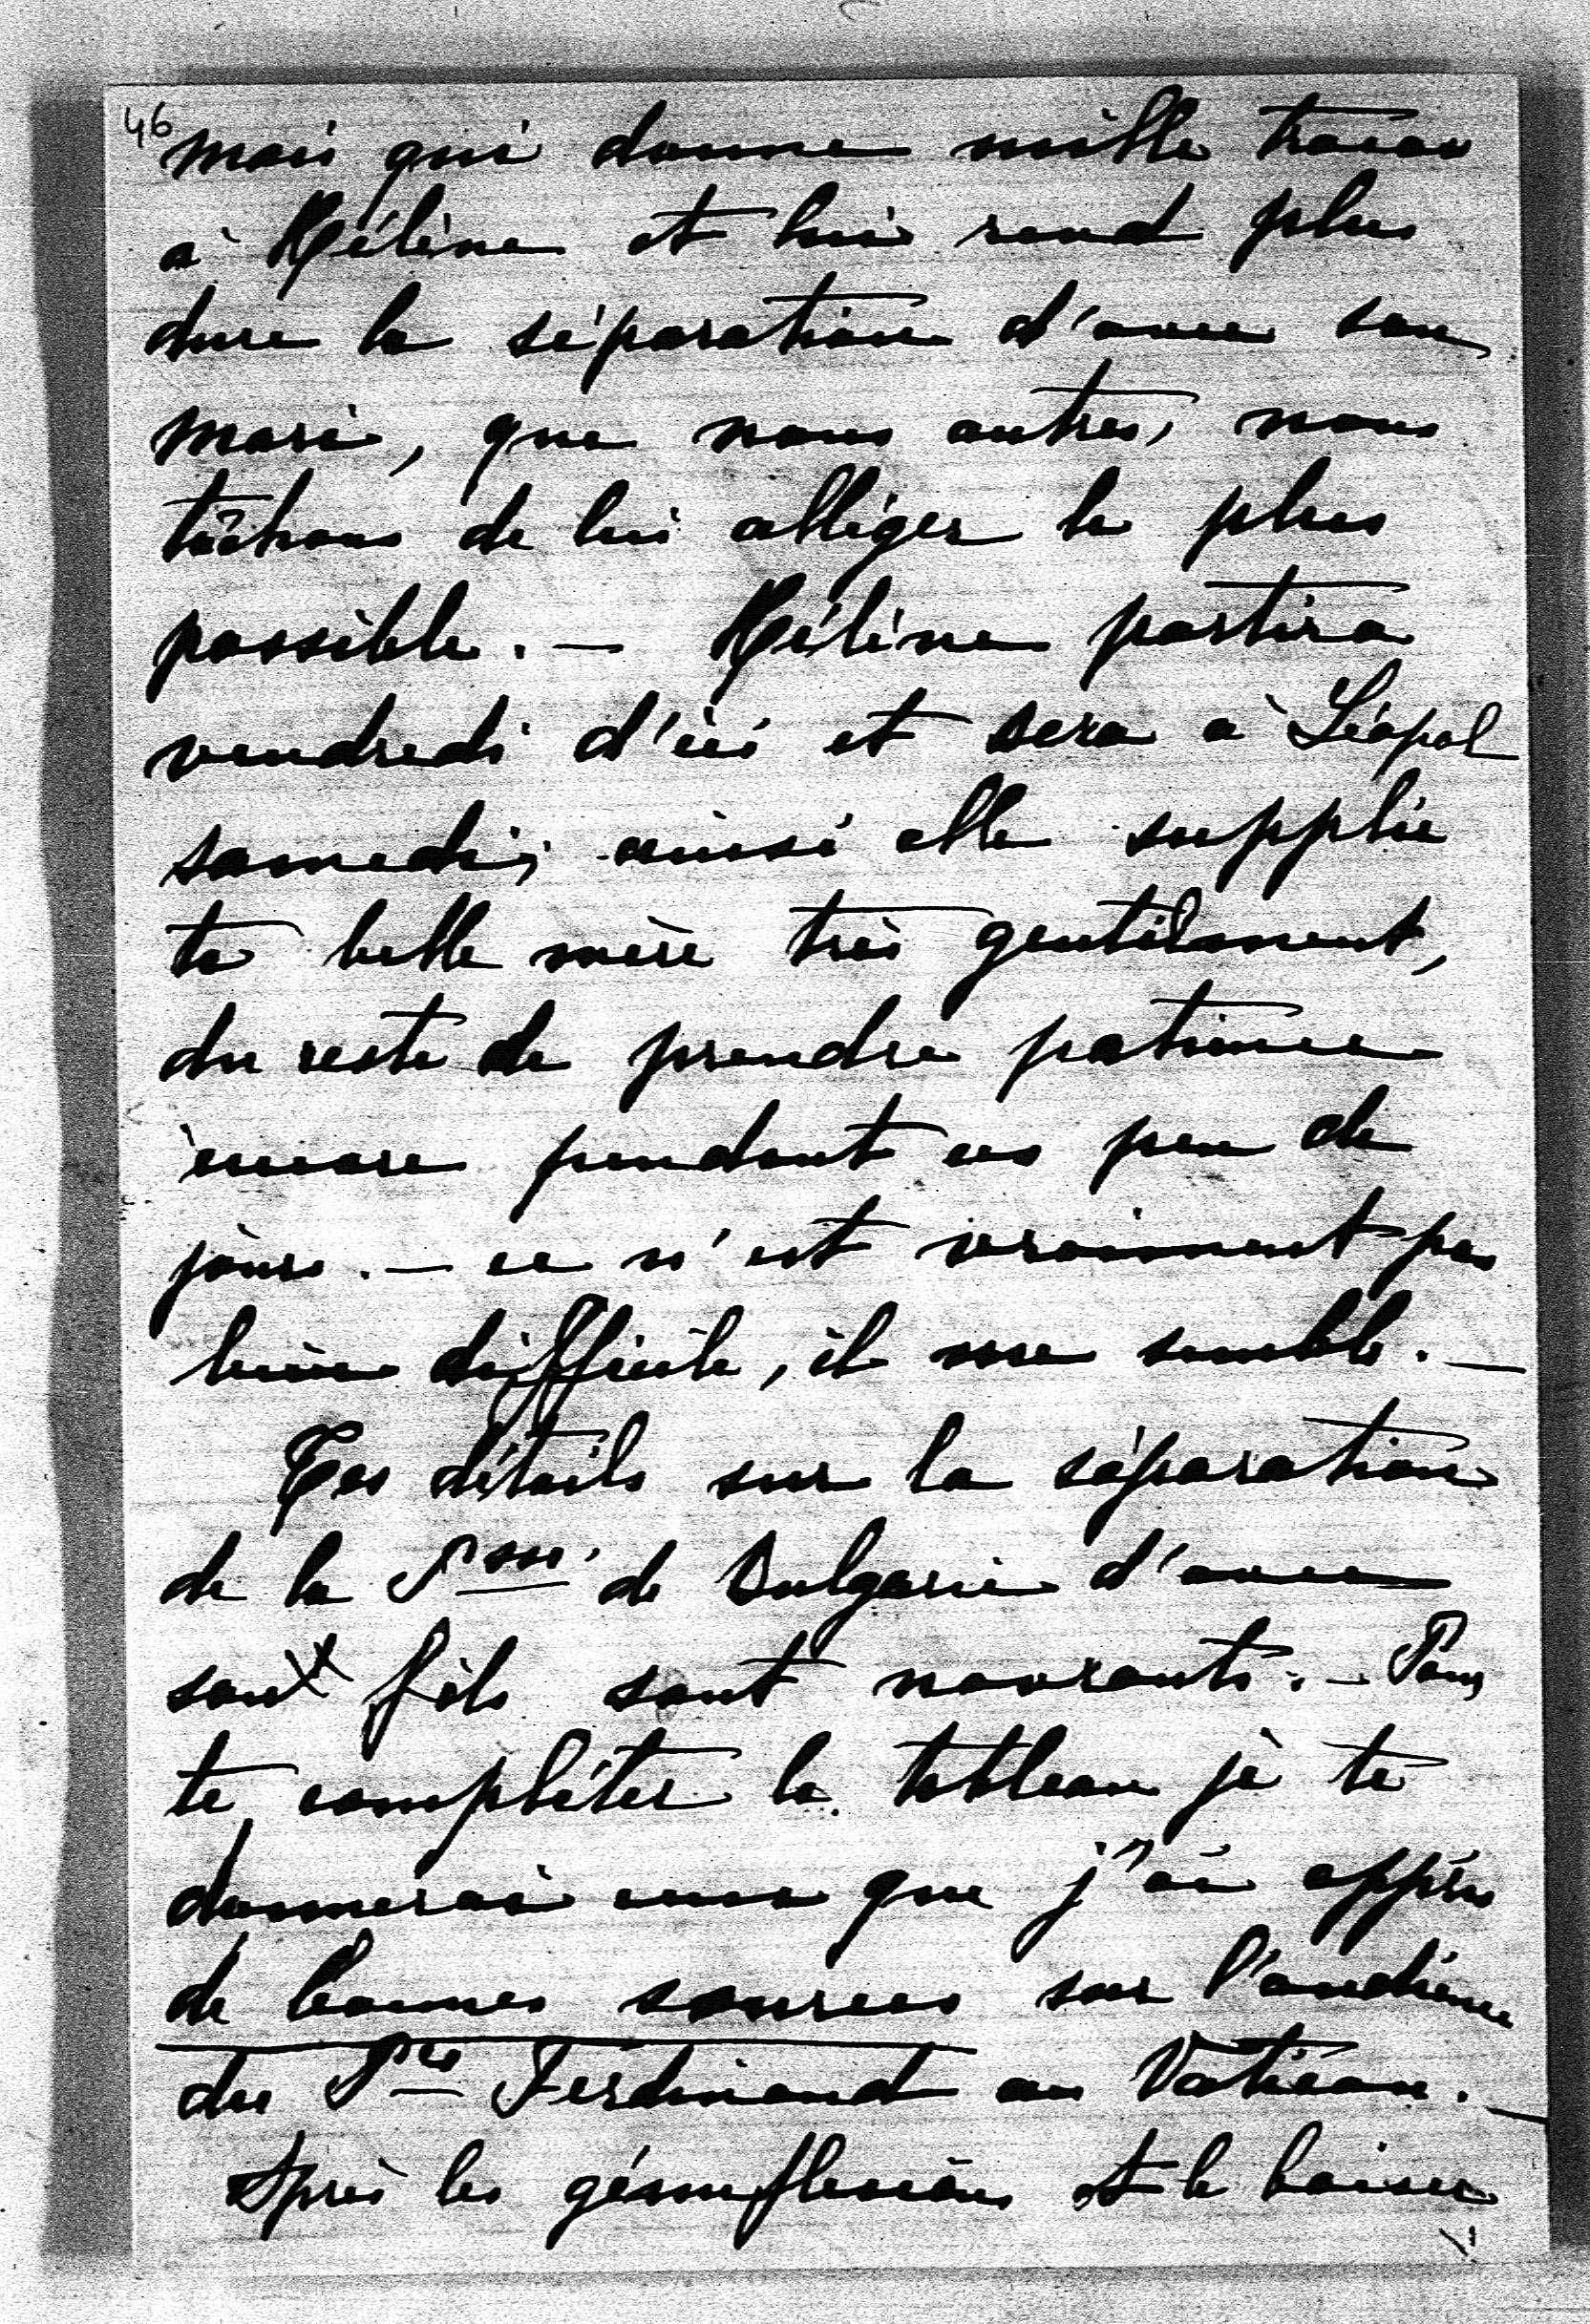 46
mais qui donne mille tracas
à Hélène et lui rend plus
dure la séparation d'avec son
mari, que nous autres, nous
tâchons de lui alléger le plus
possible. — Hélène partira
vendredi d'ici et sera à Léopol
samedi; ainsi elle supplie
ta belle mère très gentilment,
du reste de prendre patience
encore pendant ces peu de
jours. — ce n'est vraiment pas
bien difficile, il me semble. —
Tes détails sur la séparation
de la Psse. de Bulgarie d'avec
son fils sont navrants. — Pour
te compléter le tableau je te
donnerai ceux que j'ai appris
de bonnes sources sur l'audience
du Pce Ferdinand au Vatican. —
Après les génuflexions et le baiser